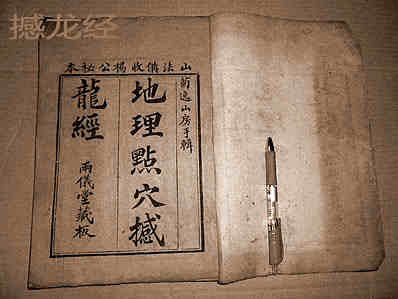 撼龙经
山法備收楊公秘本
菊逸山房手輯
地理點穴撼
龍經
兩儀堂藏板